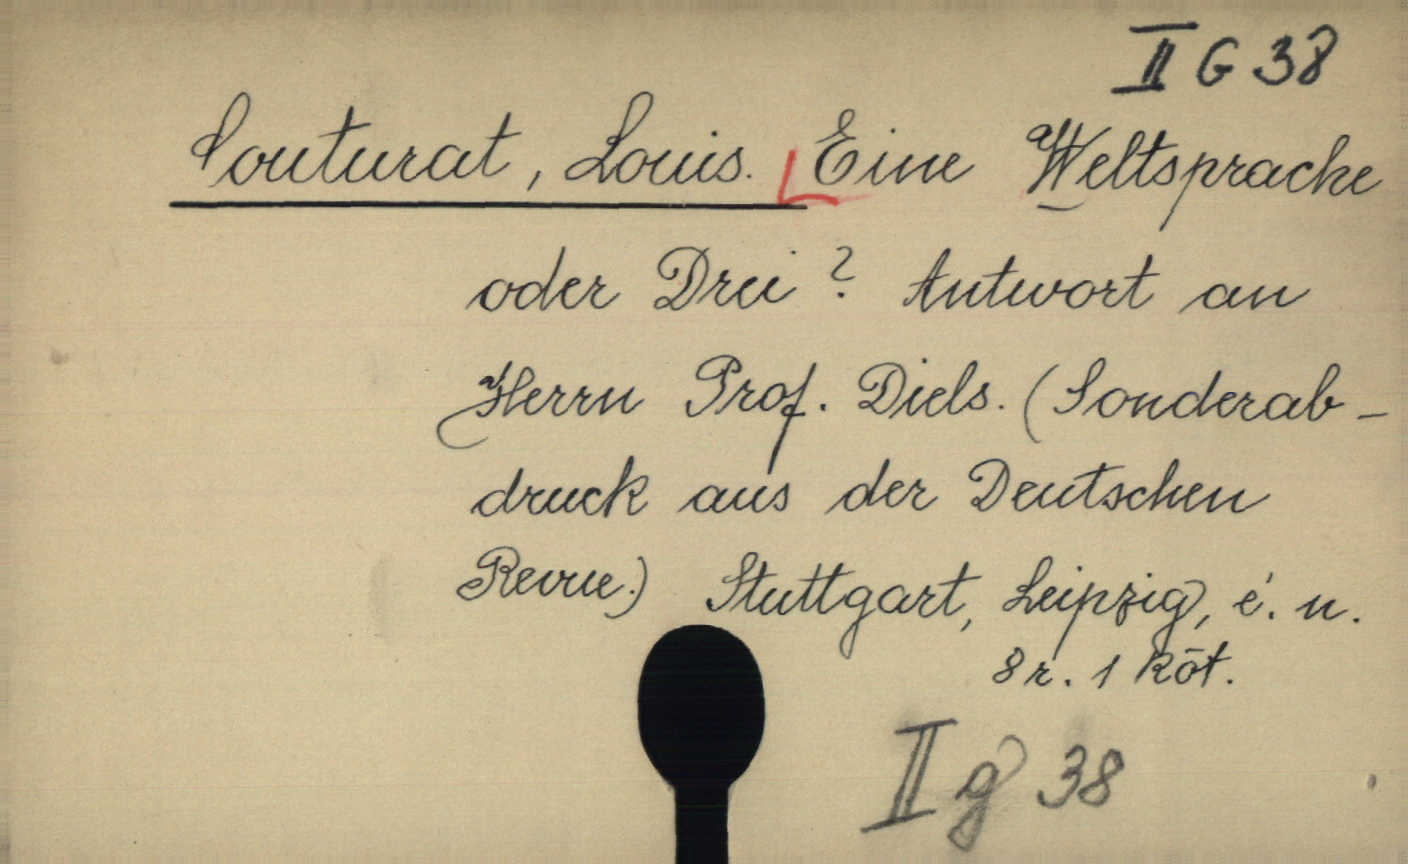 II G 38
Couturat, Louis. Eine Weltsprache
oder Drei? Antwort an
Herrn Prof. Diels. (Sonderab-
druck aus der Deutschen
Revue.) Stuttgart, Leipzig, é. n.
8 r. 1 köt.
II g 38